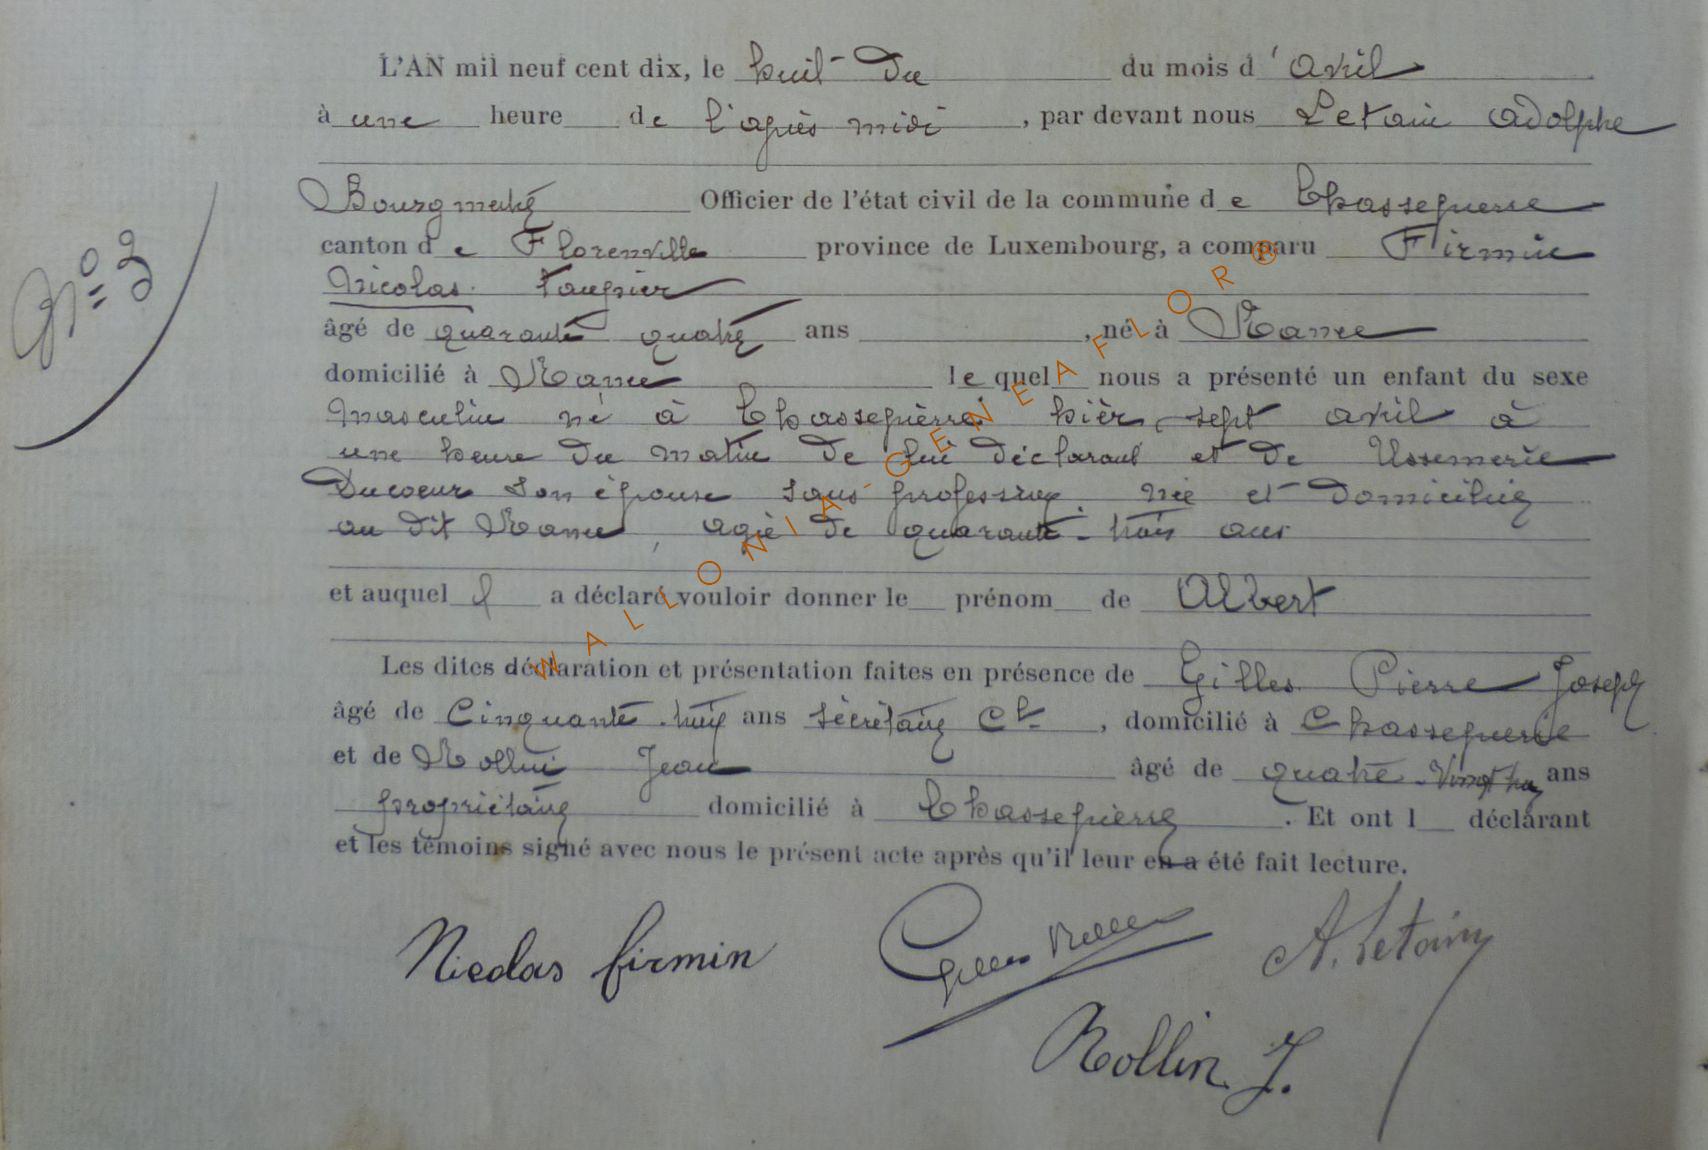 L'AN mil neuf cent dix, le huit du du mois d'Avril
à une heure de l'après midi, par devant nous Letain Adolphe
Bourgmestre Officier de l'état civil de la commune de Chassepierre
canton de Florenville province de Luxembourg, a comparu Firmin
Nicolas
âgé de quarante quatre ans, né à
domicilié à lequel nous a présenté un enfant du sexe
masculin né à Chassepierre hier sept avril à
une heure du matin de lui déclarant et de
Ducoeur son épouse sans profession née et domiciliée
au dit agée de quarante-trois ans
et auquel il a déclaré vouloir donner le prénom de Albert
Les dites déclaration et présentation faites en présence de Gilles Pierre Joseph
âgé de Cinquante ans secrétaire Cl, domicilié à Chassepierre
et de Rollin Jean âgé de quatre-vingt ans
propriétaire domicilié à Chassepierre. Et ont l déclarant
et les témoins signé avec nous le présent acte après qu'il leur en a été fait lecture.
N° 3
WALLONIA-GENEAFLOR®
Nicolas firmin
Gilles
A. Letain
Rollin J.